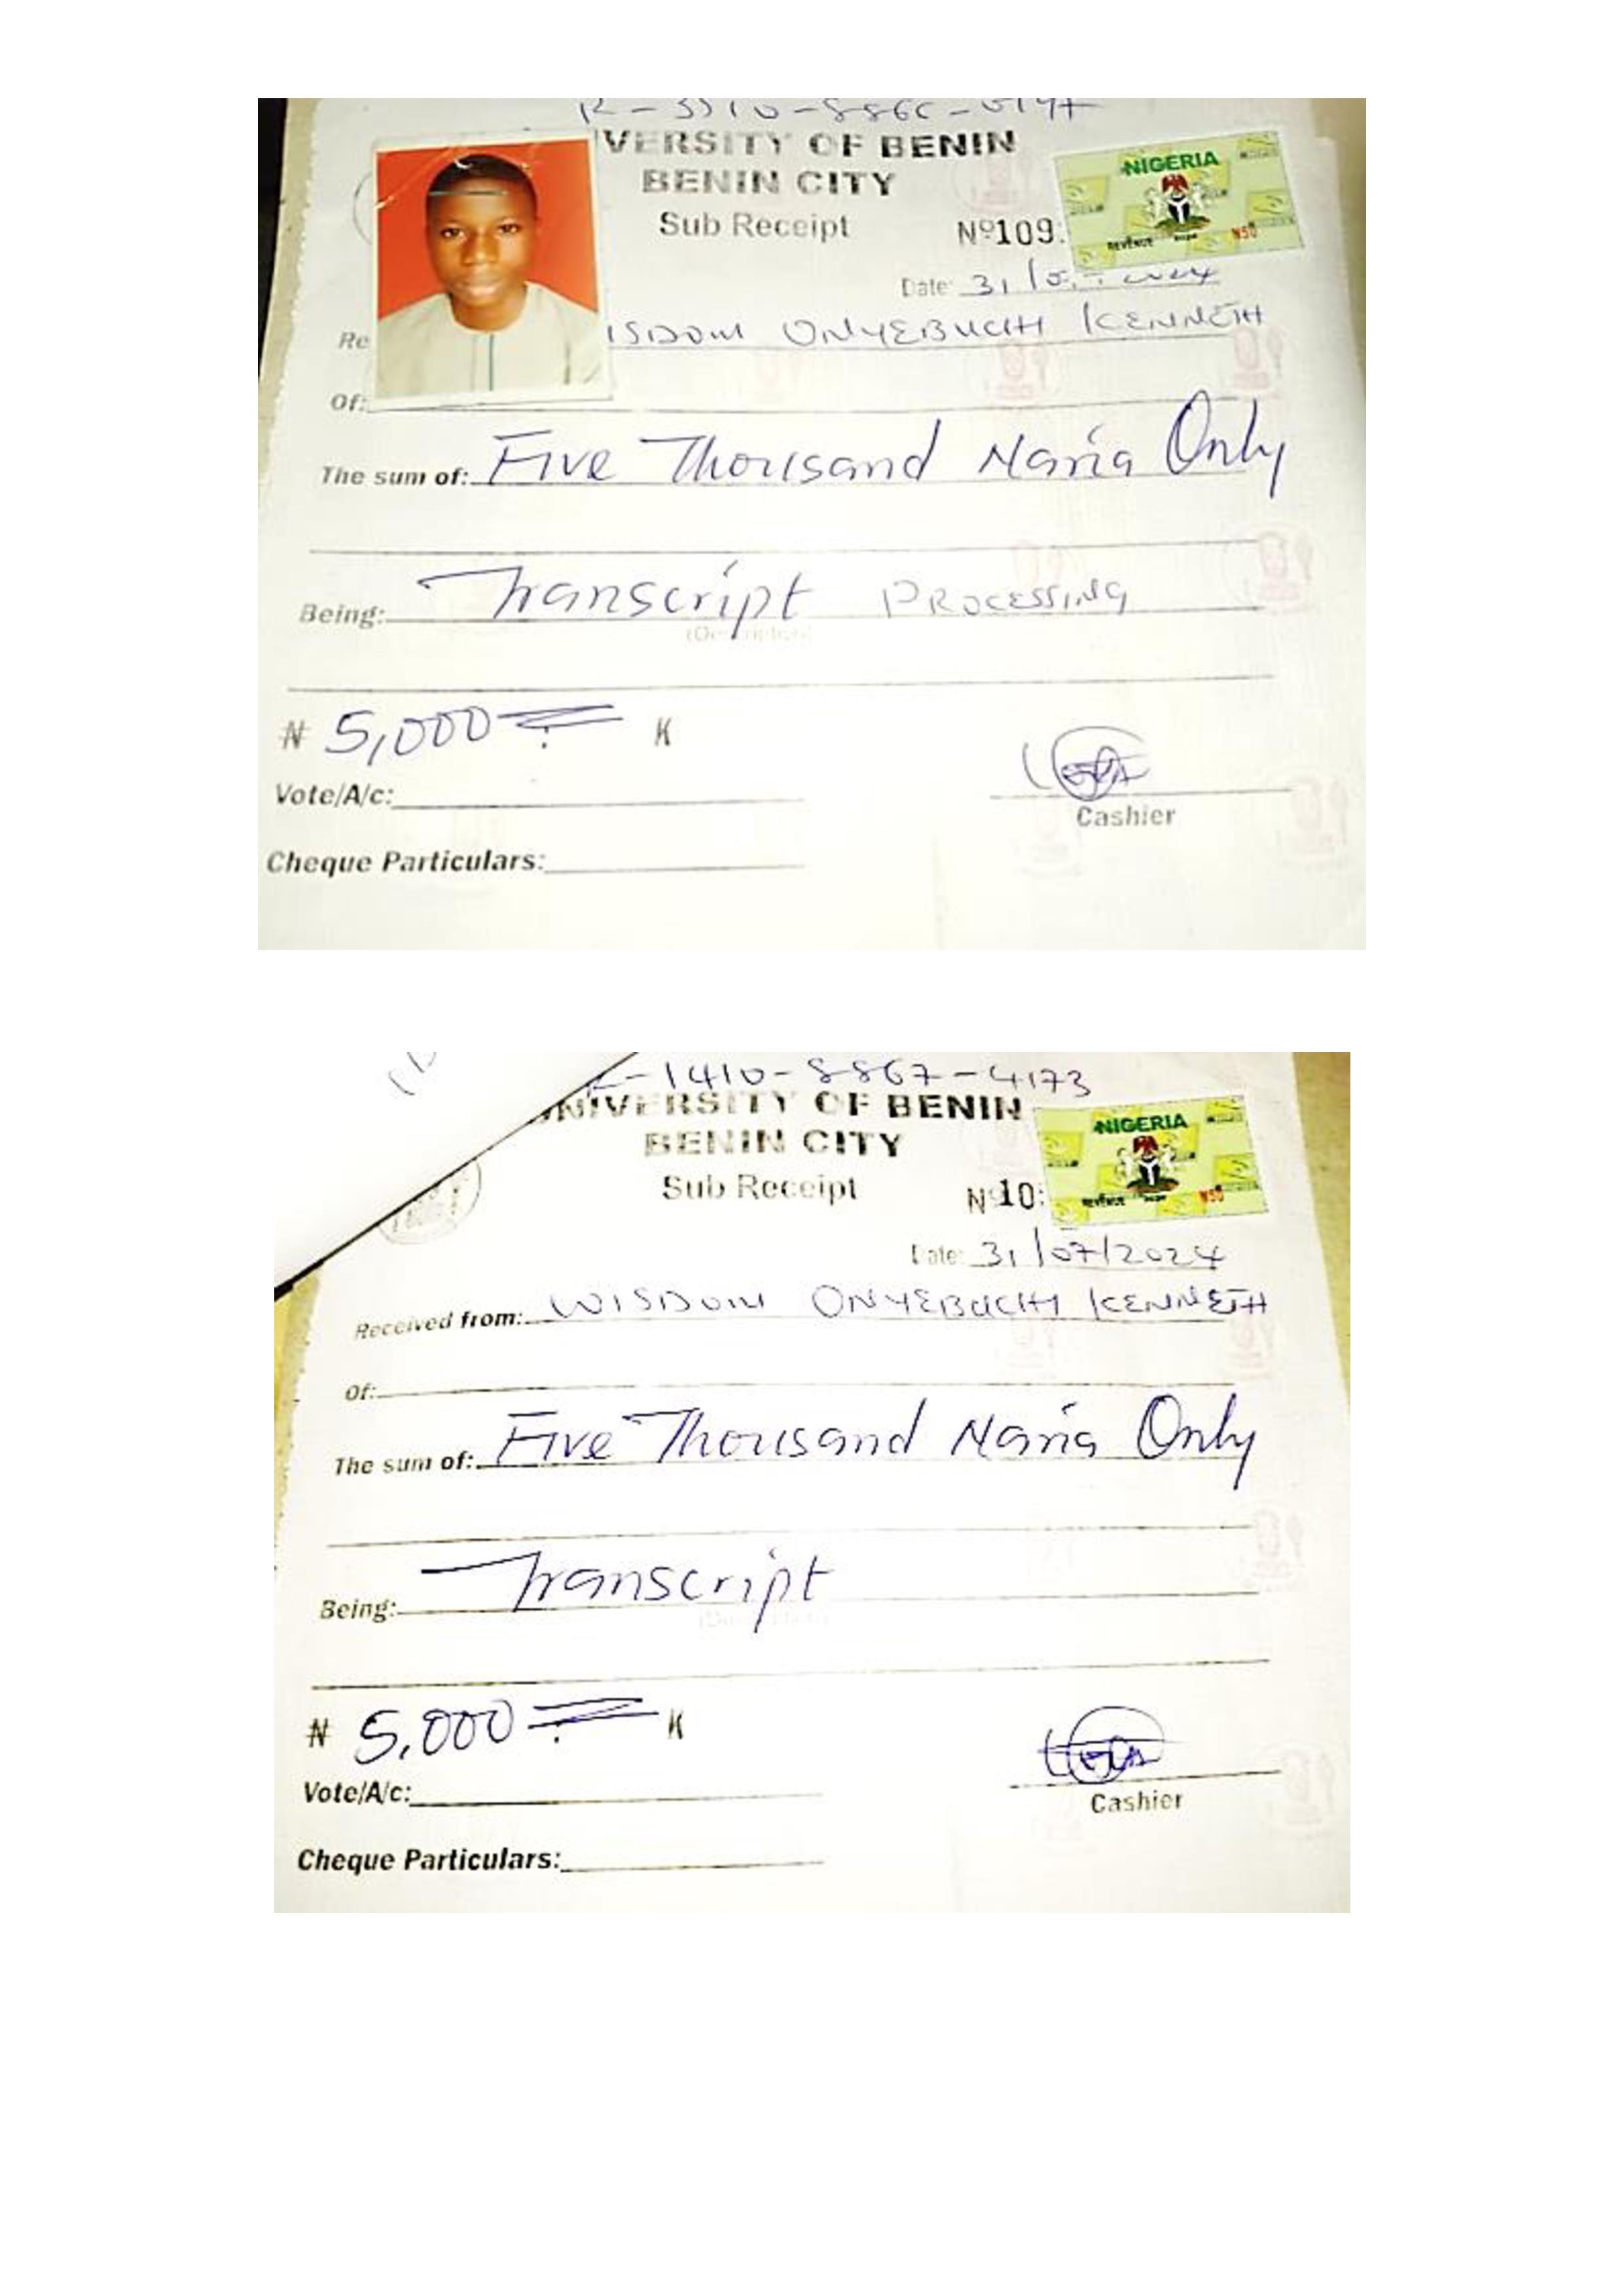 VERSITY OF BENIN
BENIN CITY
Sub Receipt
Nº109
NIGERIA
REVENUE N50
Date: 31/
Re ISDOM ONYEBUCHI KENNETH
Of:
The sum of: Five Thousand Naria Only
Being: Transcript PROCESSING
(Description)
₦ 5,000 K
Vote/A/c:
Cashier
Cheque Particulars:
R-1410-8867-4173
UNIVERSITY OF BENIN
BENIN CITY
Sub Receipt
Nº10
NIGERIA
REVENUE N50
Date: 31/07/2024
Received from: WISDOM ONYEBUCHI KENNETH
Of:
The sum of: Five Thousand Naria Only
Being: Transcript
₦ 5,000 K
Vote/A/c:
Cashier
Cheque Particulars: